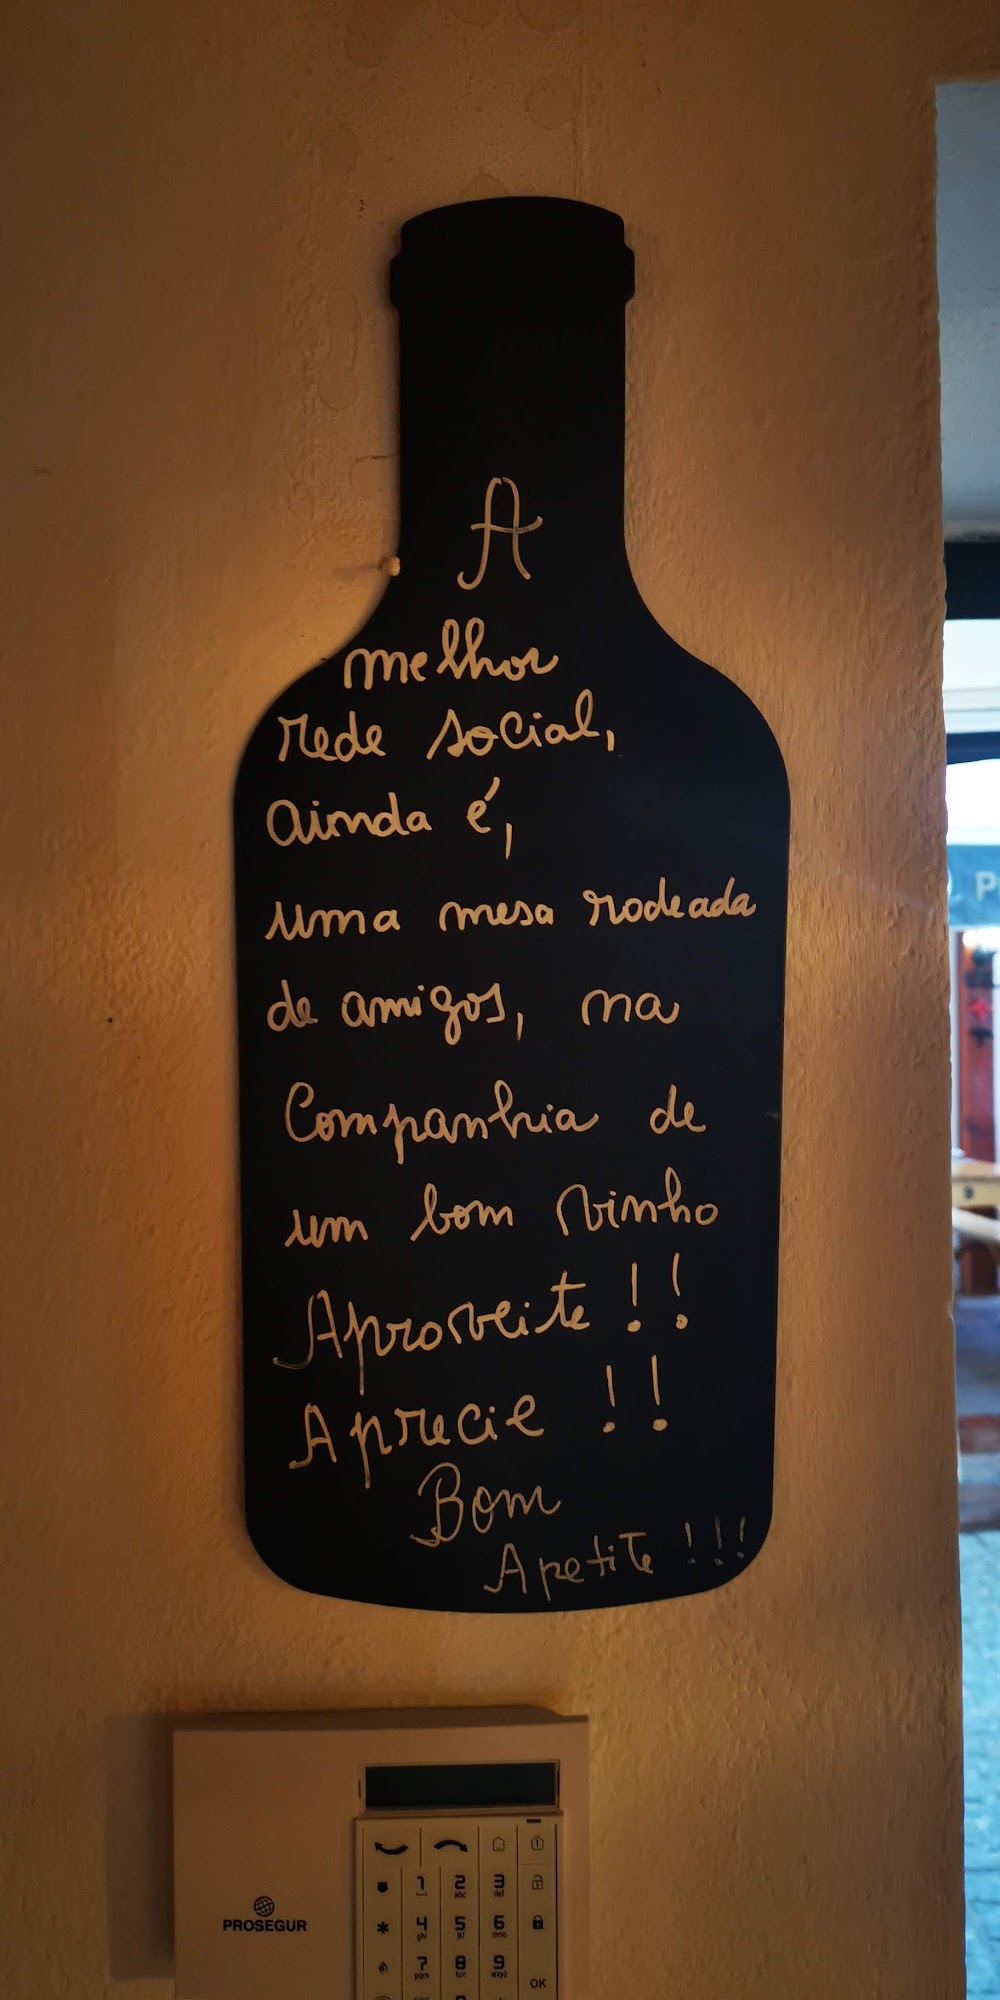 A
melhor
rede social,
ainda é,
uma mesa rodeada
de amigos, na
Companhia de
um bom vinho
Aproveite !!
Aprecie !!
Bom
Apetite !!!
PROSEGUR
1 2 3
abc def
* 4 5 6
ghi jkl mno
7 8 9
pqrs tuv wxyz
OK